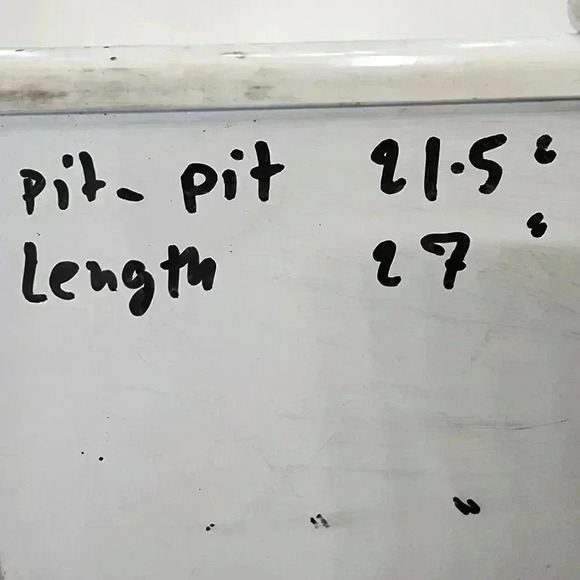 pit- pit 21.5 "
Length 27 "
"